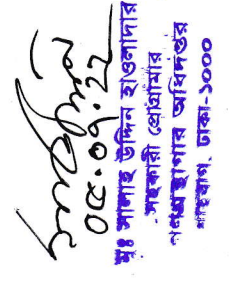 মুঃ সালাহ উদ্দিন হাওলাদার
সহকারী প্রোগ্রামার
গণগ্রন্থাগার অধিদপ্তর
শাহবাগ, ঢাকা-১০০০